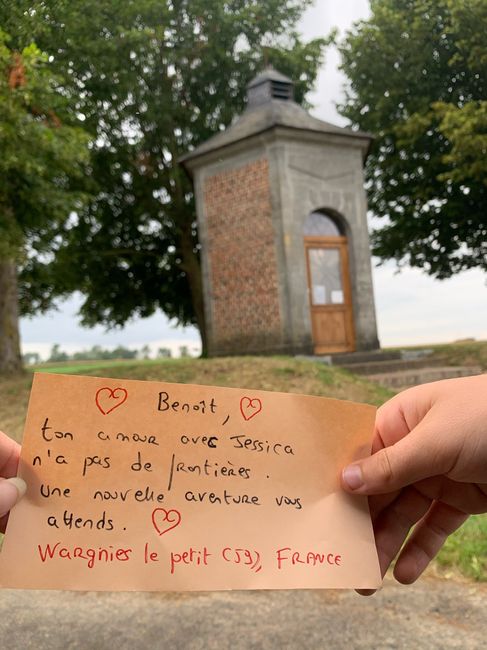 Benoît,
ton amour avec Jessica
n'a pas de frontières.
une nouvelle aventure vous
attends.
Wargnies le petit (59), FRANCE